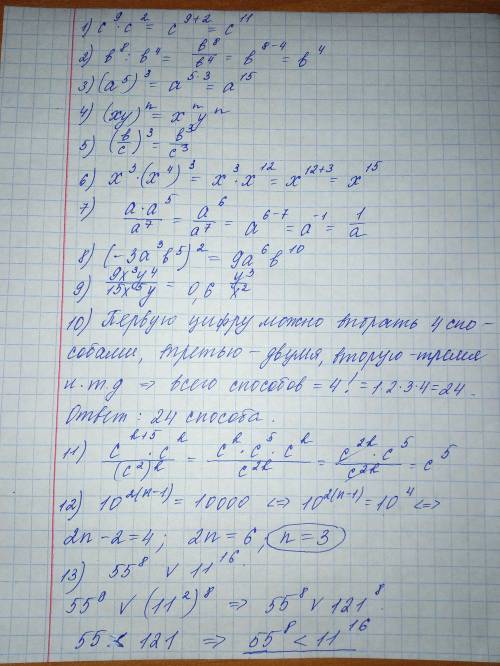 1) c⁹·c² = c⁹⁺² = c¹¹
2) в⁸ : в⁴ = в⁸/в⁴ = в⁸⁻⁴ = в⁴
3) (a⁵)³ = a⁵·³ = a¹⁵
4) (xy)ⁿ = xⁿyⁿ
5) (в/c)³ = в³/c³
6) x³·(x⁴)³ = x³·x¹² = x¹²⁺³ = x¹⁵
7) a·a⁵/a⁷ = a⁶/a⁷ = a⁶⁻⁷ = a⁻¹ = 1/a
8) (-3a³в⁵)² = 9a⁶в¹⁰
9) 9x³y⁴/15x⁵y = 0,6 y³/x²
10) Первую цифру можно выбрать 4 спо-
собами, третью - двумя, вторую - тремя
и.т.д ⇒ всего способов = 4! = 1·2·3·4 = 24.
Ответ: 24 способа.
11) cᵏ⁺⁵·cᵏ/(c²)ᵏ = cᵏ·c⁵·cᵏ/c²ᵏ = c²ᵏ·c⁵/c²ᵏ = c⁵
12) 10²⁽ⁿ⁻¹⁾ = 10000 ⇔ 10²⁽ⁿ⁻¹⁾ = 10⁴ ⇔
2n - 2 = 4; 2n = 6; n = 3
13) 55⁸ ∨ 11¹⁶.
55⁸ ∨ (11²)⁸ ⇒ 55⁸ ∨ 121⁸.
55 < 121 ⇒ 55⁸ < 11¹⁶